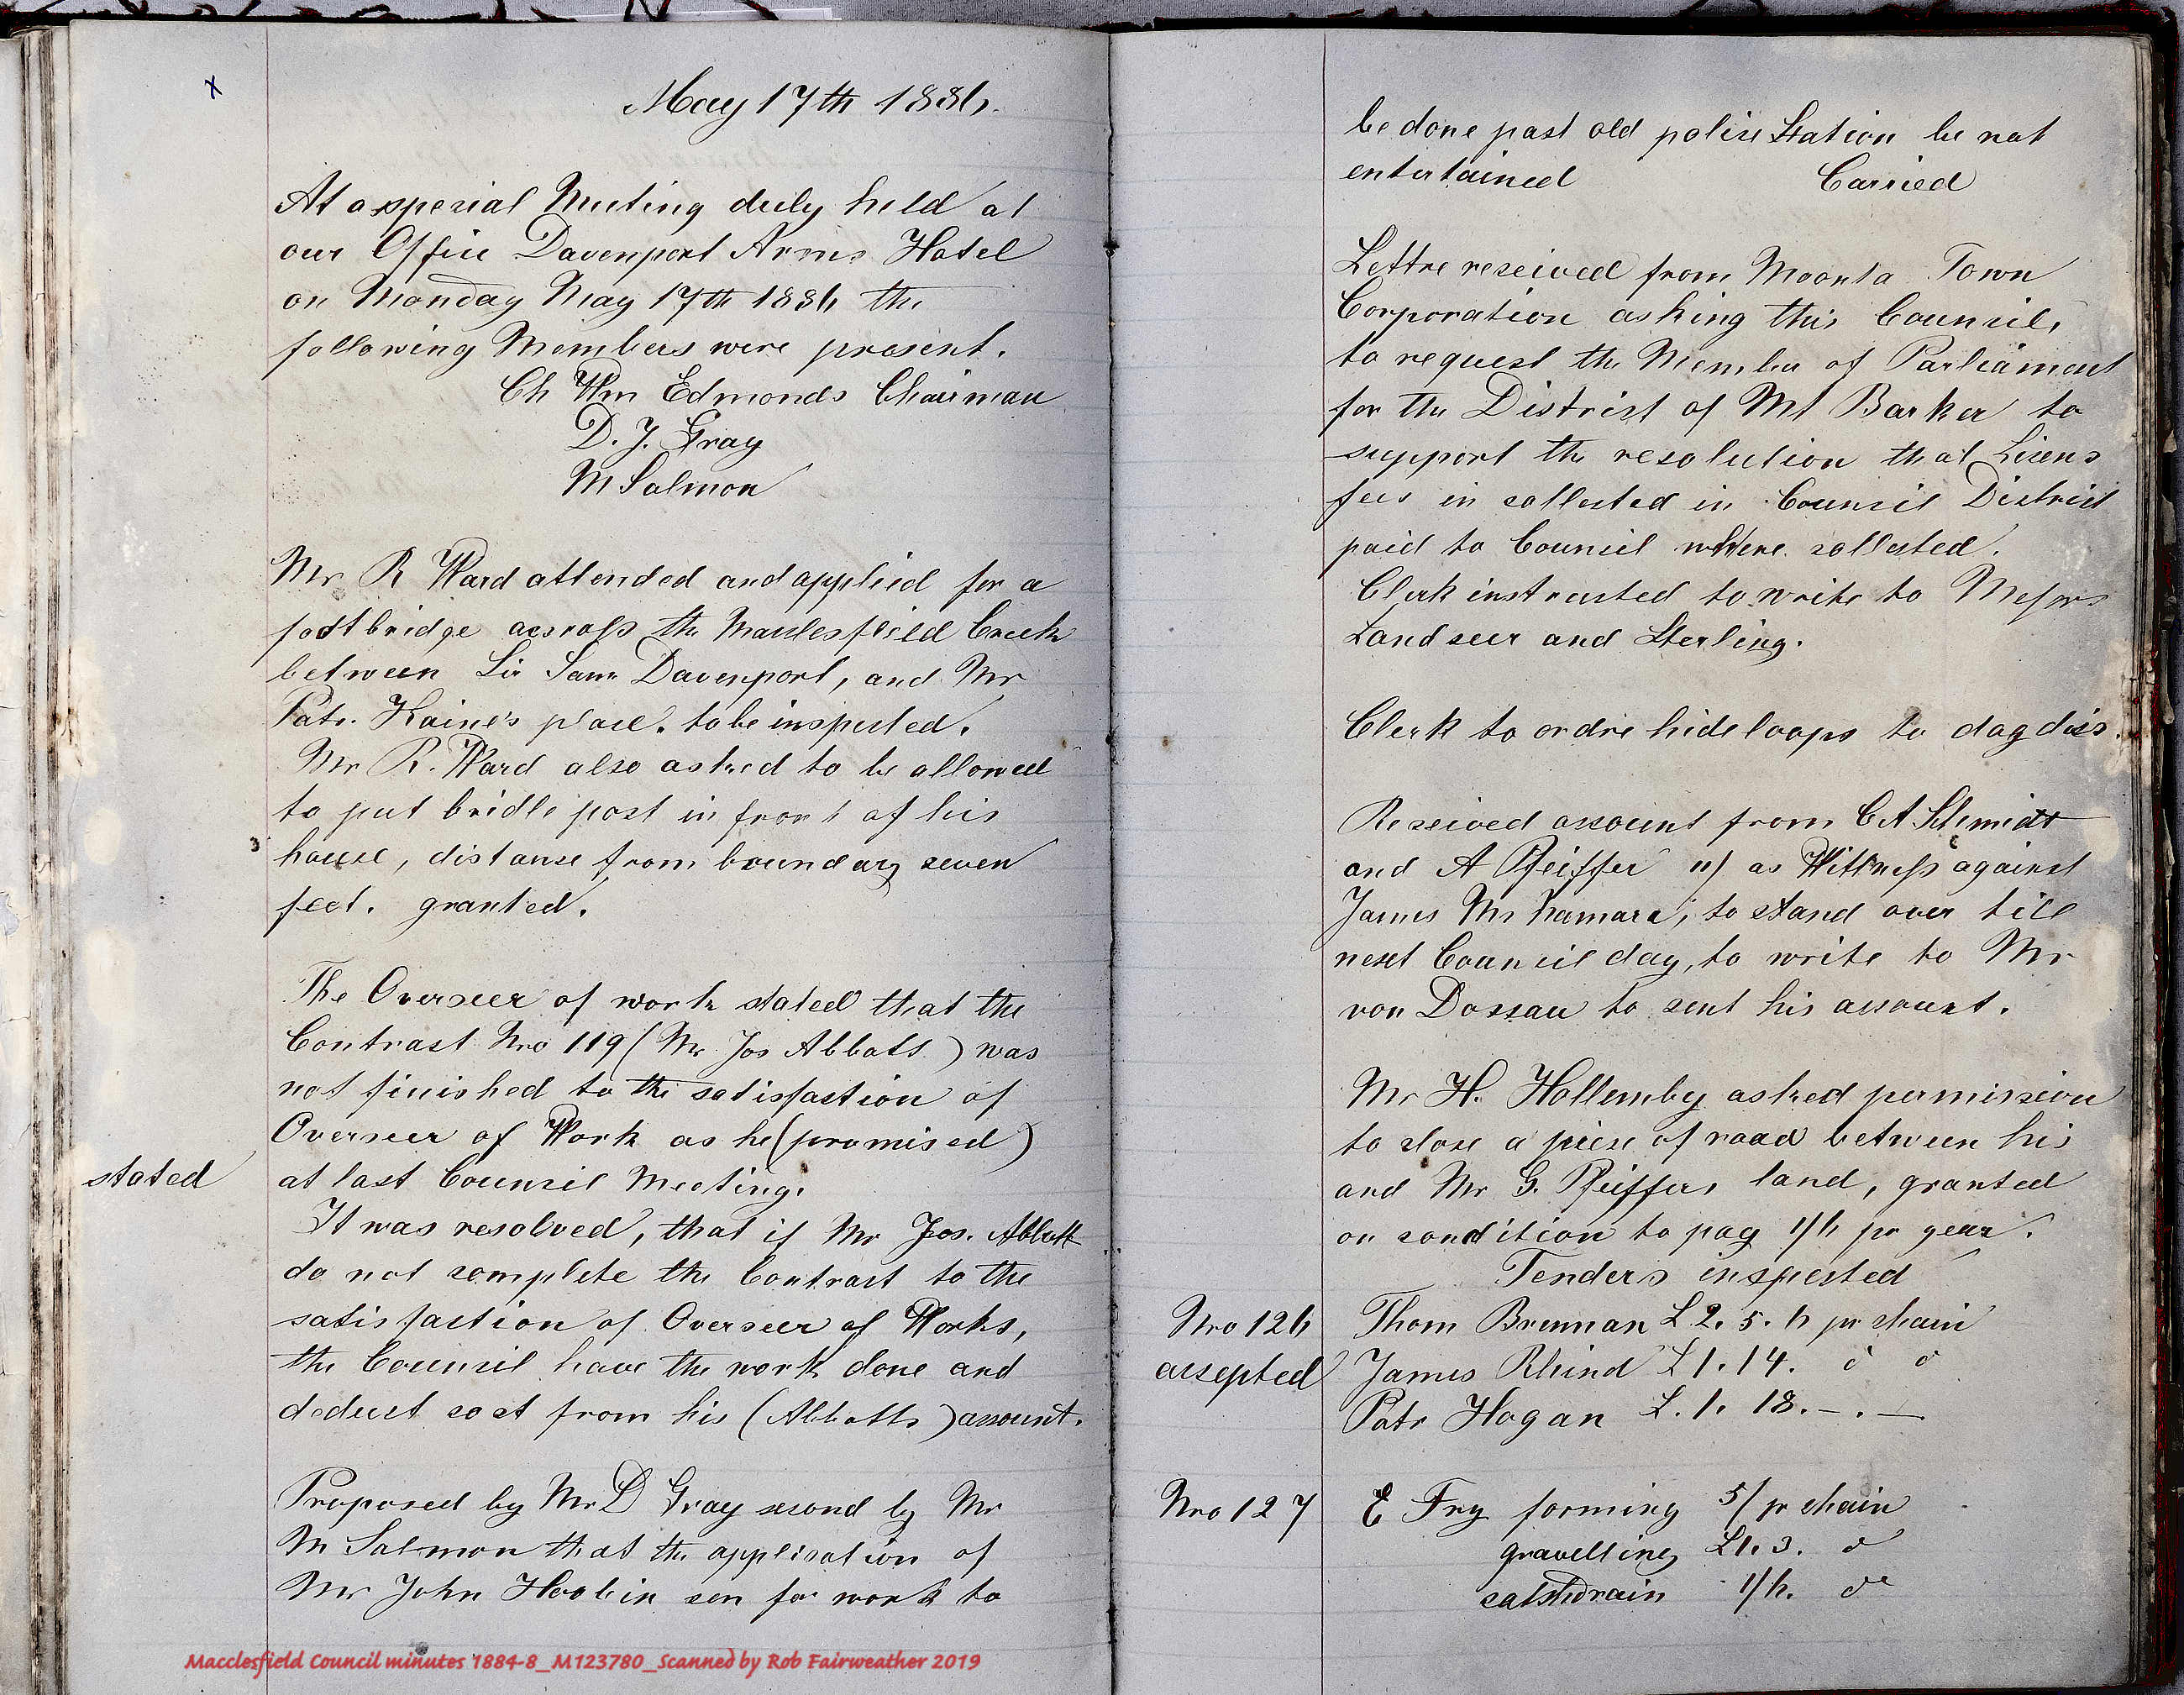 x
May 17th 1886.
At a spperial Meeting duly held at
our Office Davenport Arms Hotel
on Monday May 17th 1886 the
following Members were present.
Ch Wm Edmonds Chairman
D. J. Gray
M Salmon
Mr R Ward attended and applied for a
footbridge across the Macclesfield Creek
between Sir Sam Davenport, and Mr
Patr. Kaine's place. to be inspected.
Mr R. Ward also asked to be allowed
to put bridle post in front of his
house, distance from boundary seven
feet. granted.
The Overseer of work stated that the
Contract Nro 119 (Mr Jos Abbots) was
not finished to the satisfaction of
Overseer of Work as he (promised)
stated
at last Council Meeting.
It was resolved, that if Mr Jos. Abbott
do not complete the Contract to the
satisfaction of Overseer of Works,
the Council have the work done and
deduct cost from his (Abbotts) account.
Proposed by Mr D Gray second by Mr
M Salmon that the application of
Mr John Hoobin sen for work to
be done past old police Station be not
entertained Carried
Lettre received from Moonta Town
Corporation asking this Council,
to request the Member of Parliament
for the District of Mt Barker to
support the resolution that Licens
fees in collected in Council District
paid to Council where collected.
Clerk instructed to write to Messrs
Landseer and Sterling.
Clerk to ordre hide loops to dog discs.
Received account from C A Schmidt
and A Pfeiffer 11/ as Wittness against
James Mc Namara, to stand over till
next Council day, to write to Mr
von Dossau to sent his account.
Mr H. Hollemby asked permission
to close a piece of road between his
and Mr G. Pfeiffers land, granted
on condition to pay 1/6 pr year.
Tenders inspected
Nro 126 Thom Brennan £2. 5. 6 pr chain
accepted James Rhind £1. 14. do do
Patr Hogan £. 1. 18. -. -
Nro 127 E Fry forming 5/ pr chain
gravelling £1. 3. do
catshdrain 1/6. do
Macclesfield Council minutes 1884-8_M123780_Scanned by Rob Fairweather 2019